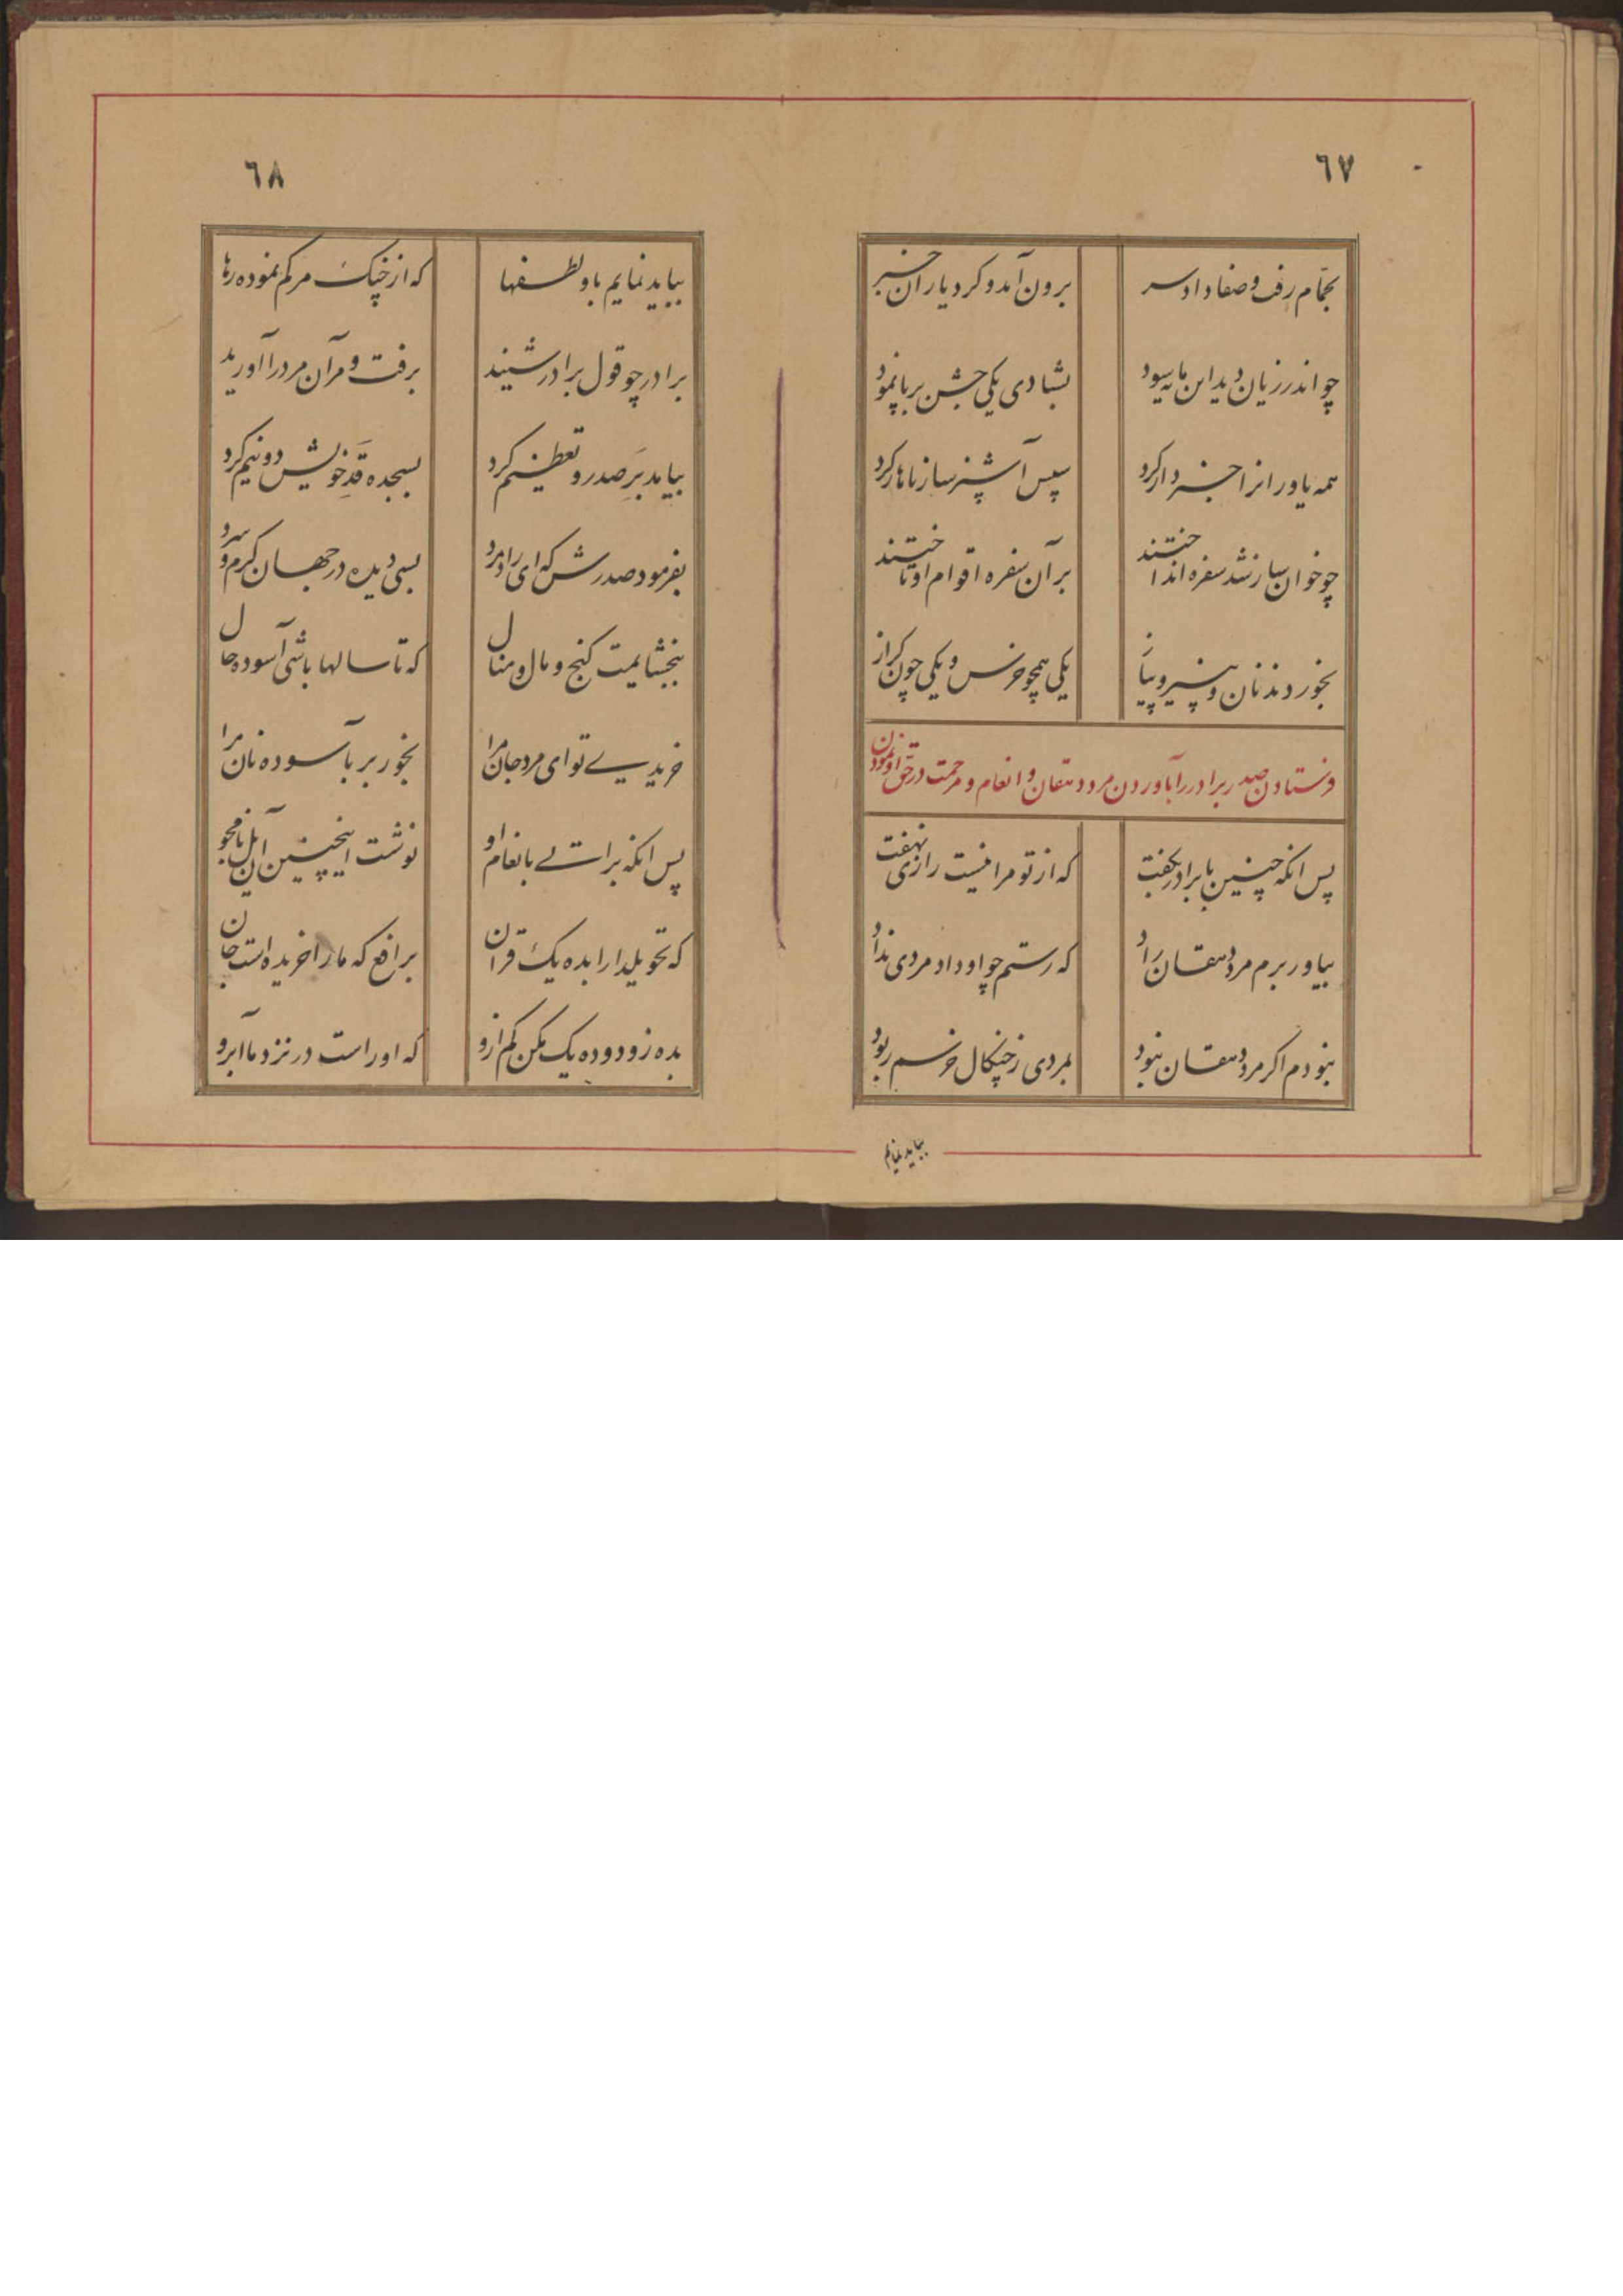 ٦٧
بحمّام رفت و صفا داد سر برون آمد و کرد یاران خبر
چو اندر زیان دید این مایه سود بشادی یکی جشن برپا نمود
همه یاورانرا خبردار کرد سپس آشپز ساز ناهار کرد
چو خوان ساز شد سفره انداختند بر آن سفره اقوام او تاختند
بخوردند نان و پنیر و پیاز یکی همچو خرس و یکی چون کراز
فرستادن صدر برادر را بآوردن مرد دهقان و انعام و مرحمت در حق او نمودن
پس انکه چنین با برادر بکفت که از تو مرا نیست رازی نهفت
بیاور برم مرد دهقان راد که رستم چو او داد مردی نداد
نبودم اکر مرد دهقان نبود بمردی ز چنکال خرسم ربود
بباید نمایم
٦٨
بباید نمایم باو لطفها که از چنک مرکم نموده رها
برادر چو قول برادر شنید برفت و مر آن مرد را آورید
بیامد بَرِ صدر و تعظیم کرد بسجده قدِ خویش دو نیم کرد
بفرمود صدرش که ای رادمرد بسی دیده در جهان کرم و سرد
ببخشایمت کنج و مال و منال که تا سالها باشی آسوده حال
خریدی تو ای مرد جان مرا بخور بر بآسوده نان مرا
پس انکه براتی بانعام او نوشت اینچنین آن یل نامجو
که تحویلدارا بده یک قران برافع که ما را خریده است جان
بده زود و ده یک مکن کم ازو که او راست در نزد ما ابرو